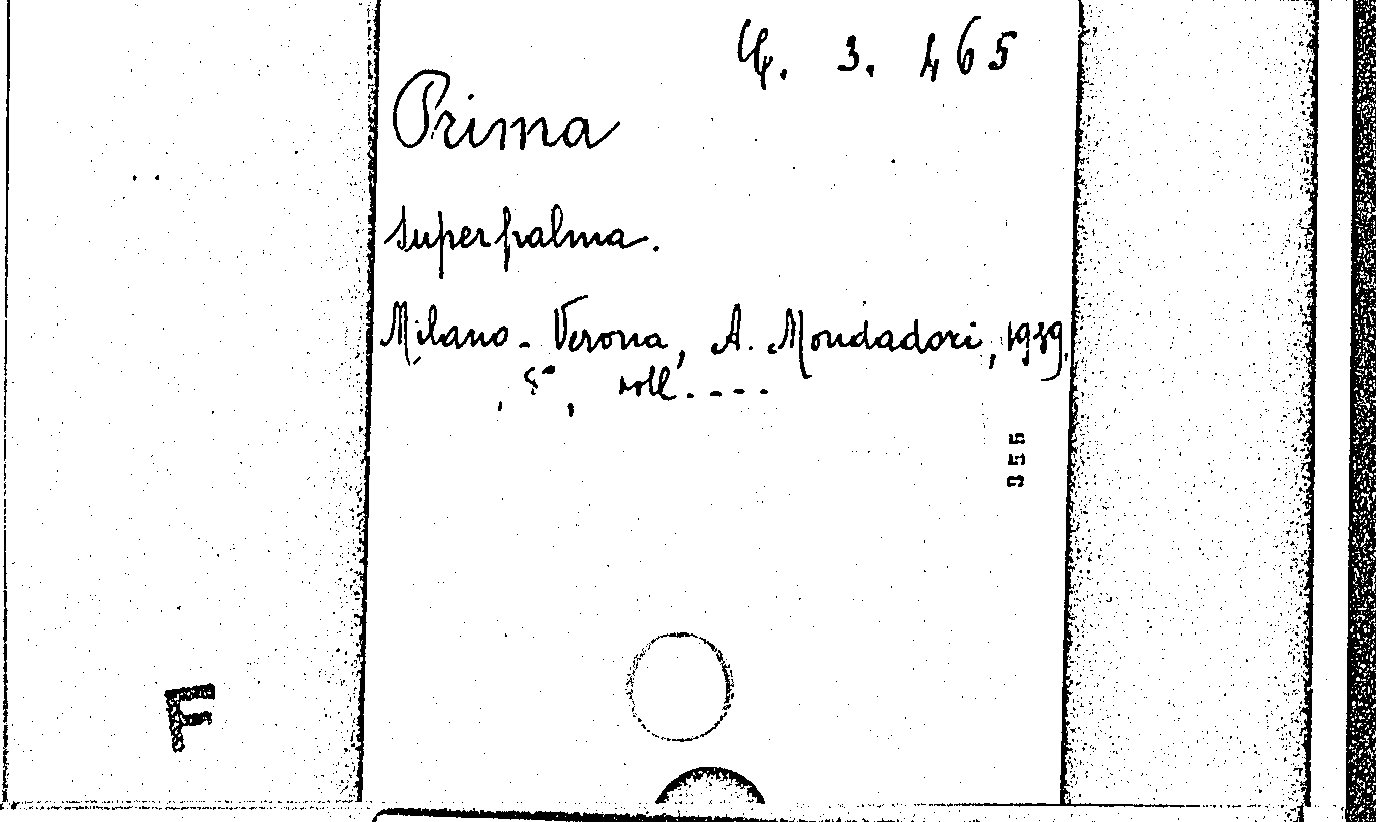 4. 3. 465
Prima
superpalma.
Milano - Verona, A. Mondadori, 1939.
, 8°, voll. - - - -
955
F